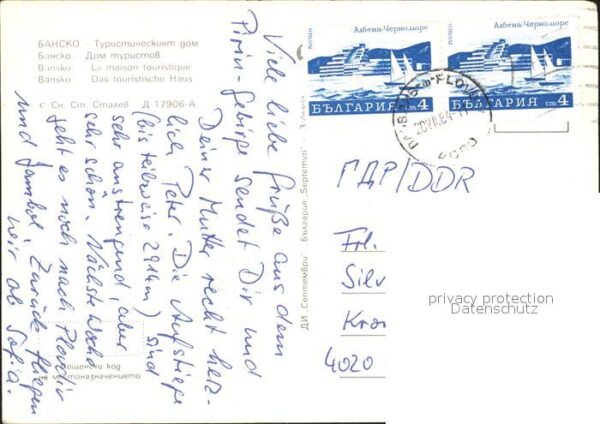 БАНСКО – Туристическият дом
Банско – Дом туристов
Bansko – La maison touristique
Bansko – Das touristische Haus
с Сн. Ст. Сталев Д 17906-А
Viele liebe Grüße aus dem
Pirin-gebirge sendet Dir und
Deiner Mutter recht herz-
lich Peter. Die Aufstiege
(bis teilweise 2914m) sind
sehr anstrengend, aber
sehr schön. Nächste Woche
geht es noch nach Plovdiv
und Jambol. Zurück fliegen
wir ab Sofia.
пощенски код
на местоназначението
ДИ „Септември“ България „Septemvri“
Албена-Черноморе
поща
БЪЛГАРИЯ ст 4
Албена-Черноморе
поща
БЪЛГАРИЯ ст 4
PLOV
4000
ГДР/DDR
Frl.
Silv
Kro
4020
privacy protection
Datenschutz